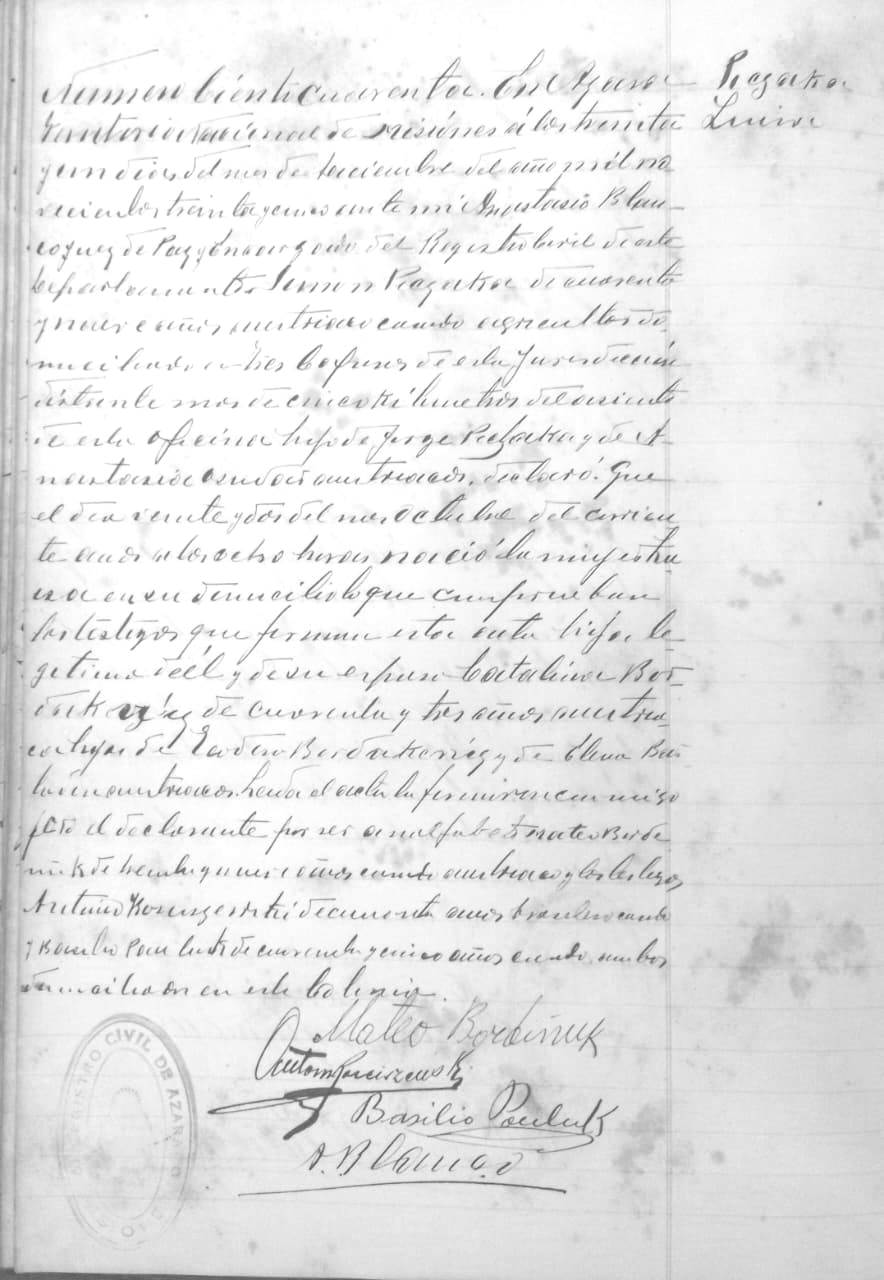 Numero Ciento cuarenta. En Azara
Territorio Nacional de Misiones á los treinta
y un dias del mes de Diciembre del año mil no-
vecientos treinta y cinco ante mi Anastasio Blan-
co Juez de Paz y Encargado del Registro Civil de este
Departamento Simon Paczaka de cuarenta
y nueve años austriaco casado agricultor do-
miciliado en Tres Capones de esta Jurisdicción
distante mas de cinco Kilometros del asiento
de esta oficina hijo de Jorge Paczaka y de A-
nastasia austriacos, declaró: Que
el dia veinte y dos del mes Octubre del corrien-
te años a las ocho horas nació la mujer Lu-
isa en su domicilio lo que comprueban
los testigos que firman esta acta hija le-
gitima de él y de su esposa Catalina Bor-
de cuarenta y tres años austria-
ca hija de Teodoro y de Elena
austriacos leida el acta la firmaron conmigo
el declarante por ser analfabeto Mateo Borde-
niuk de treinta y nueve años casado austriaco y los testigos
Antonio de cuarenta años brasilero casado
y Basilio Pauluk de cuarenta y cinco años casado ambos
domiciliados en esta Colonia.
Paczaka
Luisa
Mateo Bordeniuk
Antonio
Basilio Pauluk
A. Blanco
REGISTRO CIVIL DE AZARA